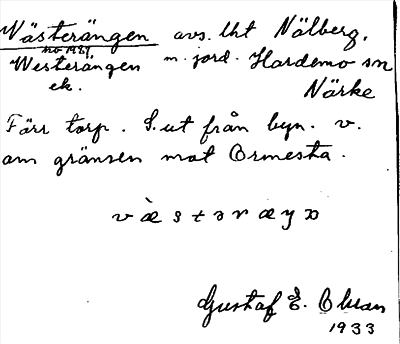 Västerängen avs. till Nälberg,
no 1989
Westerängen m. jord. Hardemo sn
ek. Närke
Förr torp. S. ut från byn. v.
om gränsen mot Ormesta.
væ̀stəræŋən
Gustaf E. Olsson
1933